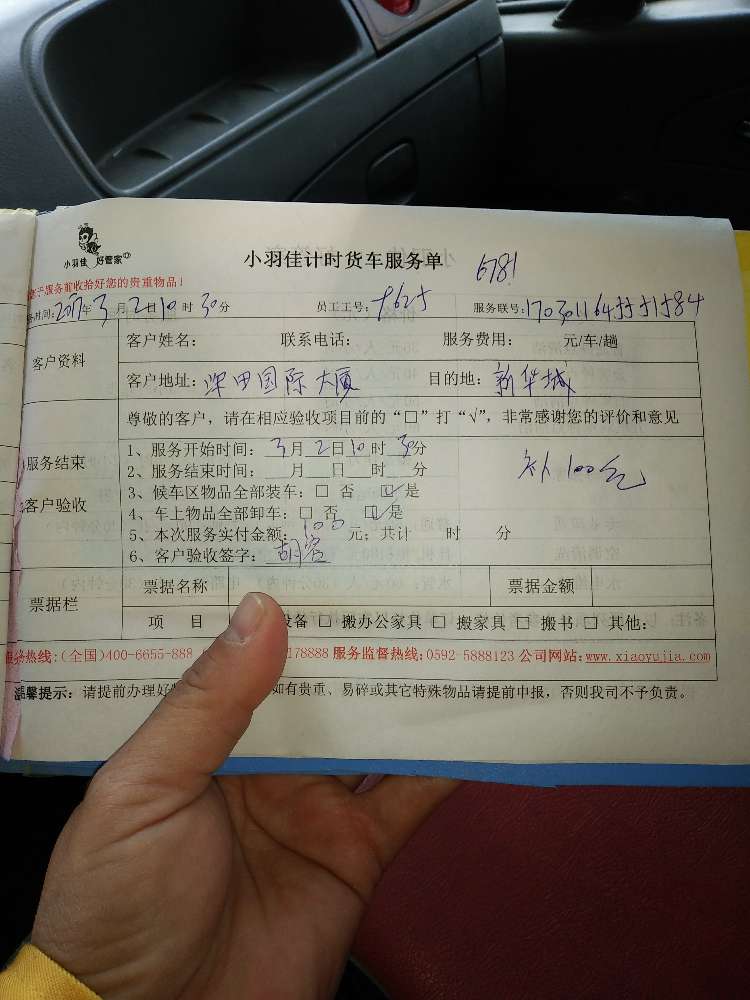 小羽佳 好管家
小羽佳计时货车服务单 6781
于服务前收拾好您的贵重物品!
时间:2017年3月2日10时30分 员工工号: 服务联号:
客户资料
客户姓名: 联系电话: 服务费用: 元/车/趟
客户地址:深田国际大厦 目的地:新华城
服务结束
客户验收
尊敬的客户,请在相应验收项目前的“□”打“√”,非常感谢您的评价和意见
1、服务开始时间:3月2日10时30分
2、服务结束时间:__月__日__时__分
补100元
3、候车区物品全部装车:□ 否 ☑是
4、车上物品全部卸车:□ 否 ☑是
5、本次服务实付金额:100元;共计 时 分
6、客户验收签字:
票据栏
票据名称 票据金额
项 目 设备 □ 搬办公家具 □ 搬家具 □ 搬书 □ 其他:
服务热线:(全国)400-6655-888 178888 服务监督热线:0592-5888123 公司网站:www.xiaoyujia.com
温馨提示:请提前办理好 如有贵重、易碎或其它特殊物品请提前申报,否则我司不予负责。